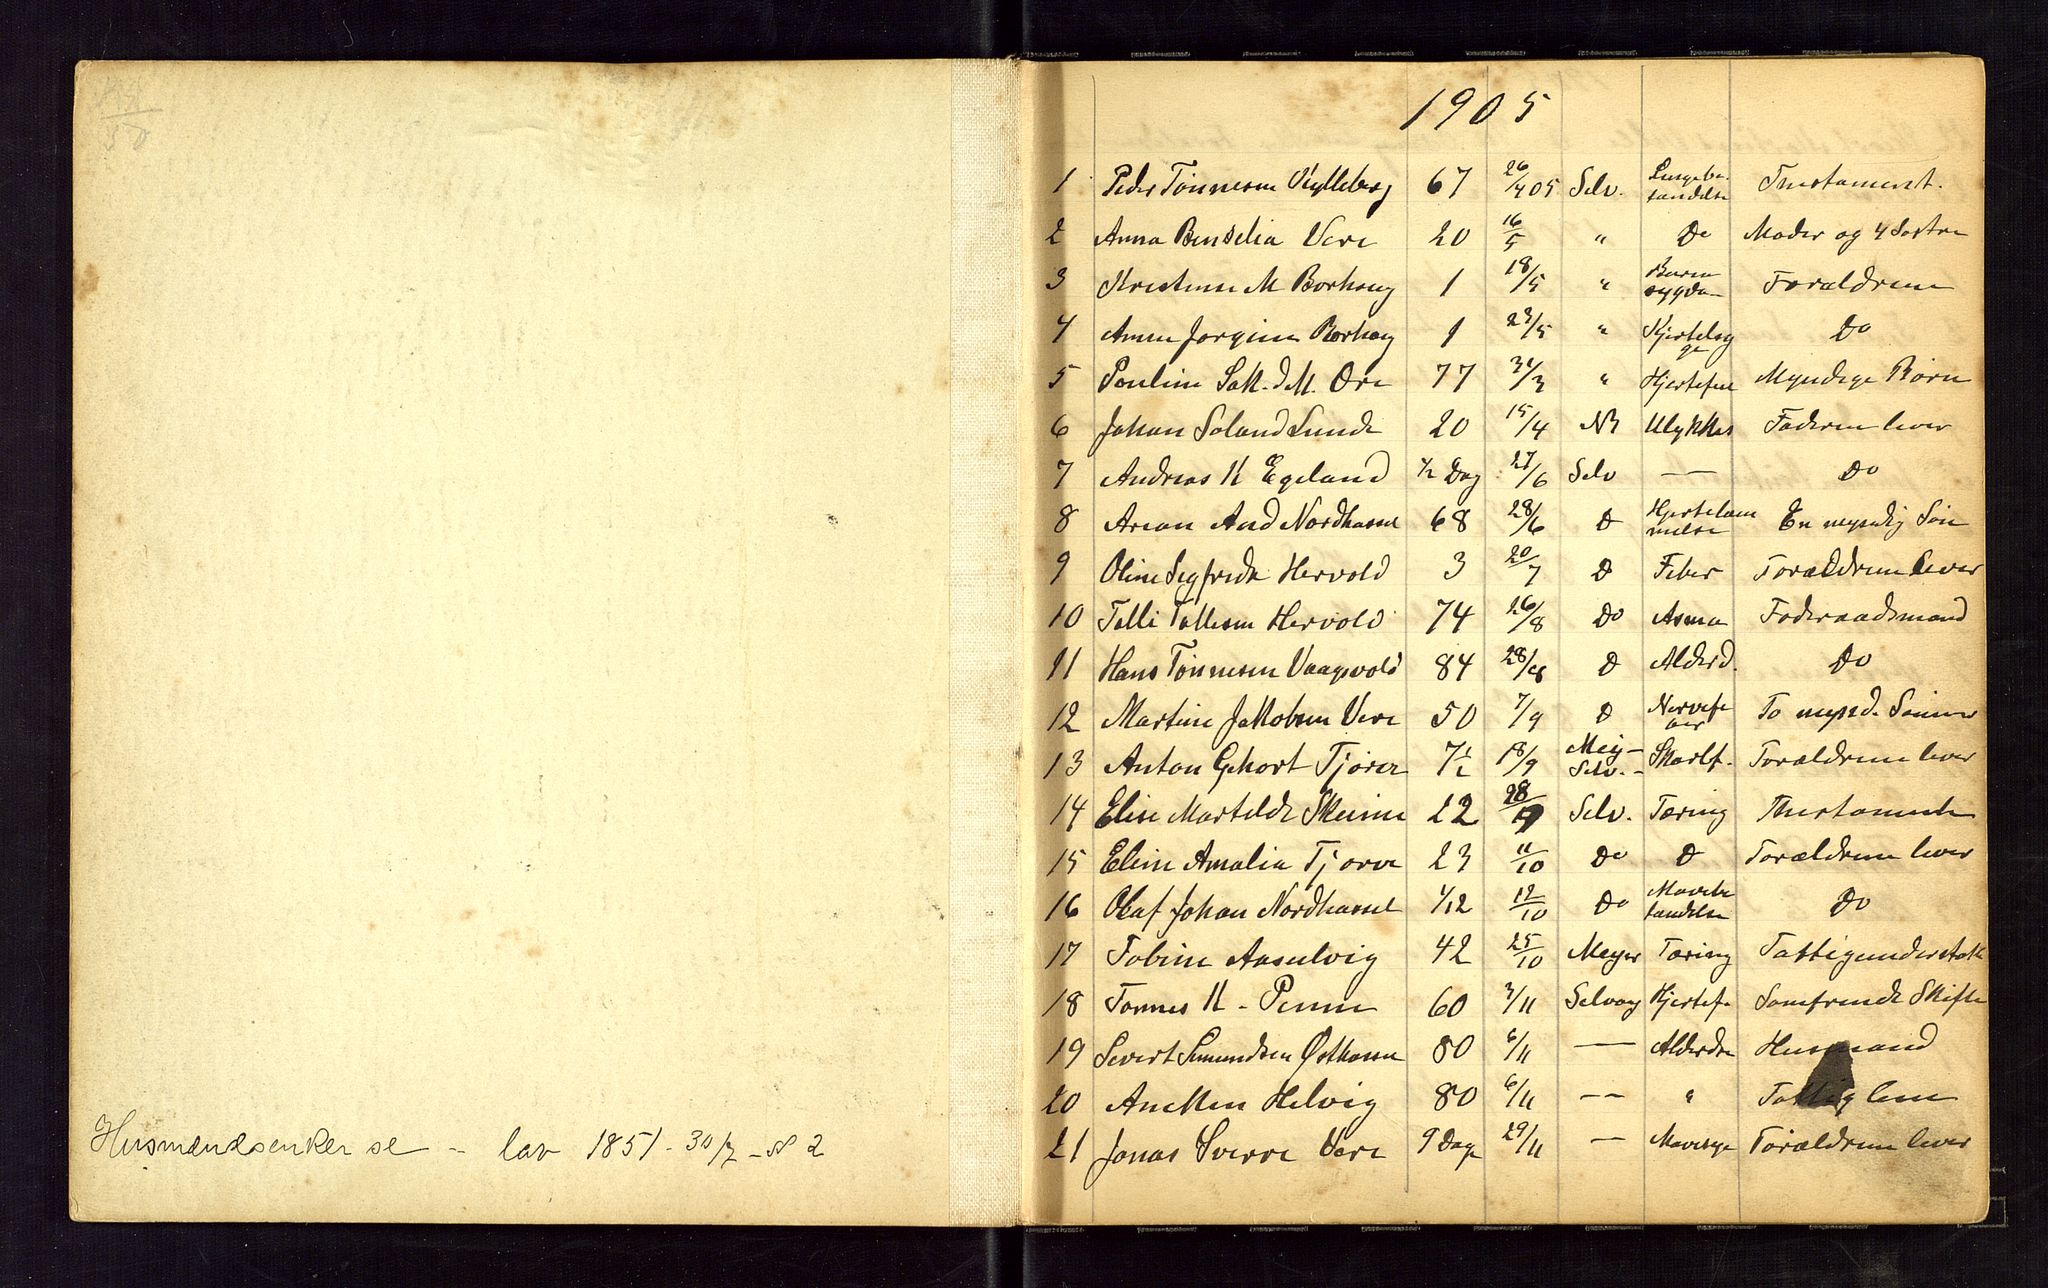 Husmandsenker se - lov 1851 - 30/7 - № 2
1905
1 Peder Tønnesen Kylleberg 67 26/4 05 Selv. Lungebe-tændelse Testament.
2 Anna Bendelia Vere 20 16/5 " Do Moder og 4 Søstre
3 Kristense M Borhaug 1 18/5 " Barne sygdo- Forældrene
4 Anne Jørgine Borhaug 1 23/5 " Kjertelsyge Do
5 Pouline Sak. d M. Ore 77 31/3 " Hjertefeil Myndige Børn
6 Johan Soland Lunde 20 15/4 N1 Ulykkes Faderen lever
7 Andreas K Egeland 1/2 Dag 27/6 Selv — Do
8 Arian And Nordhassel 68 28/6 D Hjertelammelse En myndig Søn
9 Oline Segfrede Hervold 3 20/7 D Feber Forældrene lever
10 Talli Tallesen Hervold 74 26/8 Do Asma Føderaadsmand
11 Hans Tønnesen Vaagsvold 84 28/8 D Alderd. Do
12 Martine Jakobsen Vere 50 7/9 D Nervefeber To mynd. Sønner
13 Anton Gehart Tjørve 7 1/2 18/9 Mey- Selv. - Skarlf. Forældrene lever
14 Elise Martilde Skeime 22 28/9 Selv. Tæring Thestamente
15 Eline Amalia Tjorve 23 11/10 Do D Forældrene lever
16 Olaf Johan Nordhassel 1/12 12/10 Do Mavebetændelse Do
17 Tobine Aaselvig 42 25/10 Meyer Tæring Fattigunderstøtt
18 Tønnes K - Penne 60 3/11 Selvaag Hjertef. Samfrende Skifte
19 Severt Semundsen Østhassel 80 6/11 — Alderdo Husmand
20 Anekken Helvig 80 6/11 -- " Fattiglem
21 Jonas Sverre Vere 9 Dage 29/11 — Mavesyge Forældrene lever